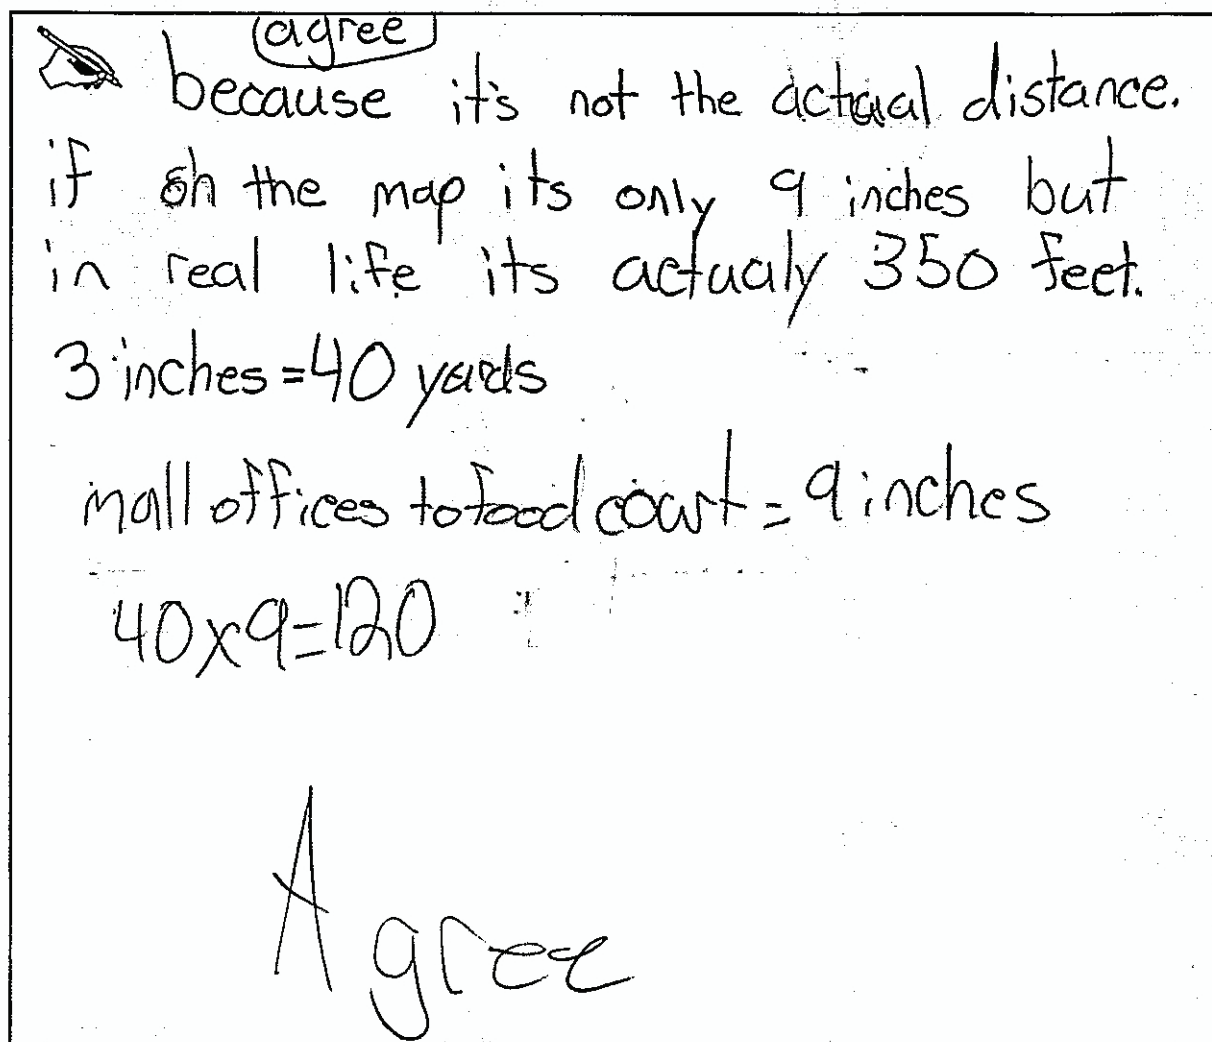 agree
because it's not the actual distance.
if on the map its only 9 inches but
in real life its actualy 350 feet.
3 inches = 40 yards
mall offices to food court = 9 inches
40x9=120
Agree